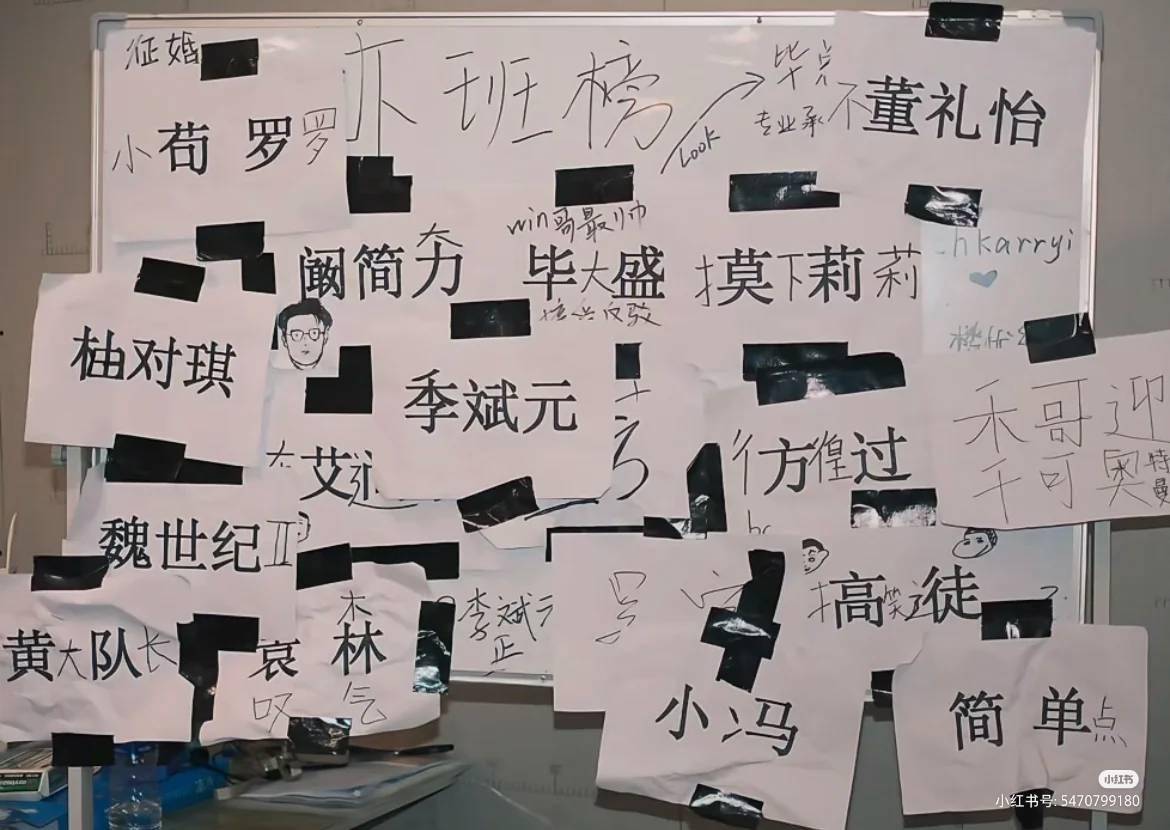 征婚
小苟 罗罗
卞班榜
Look
毕点
专业承
不董礼怡
阚简力
win哥最帅
毕大盛
扌莫下莉莉
hkarryi
柚对琪
季斌元
禾哥迎
千可奥特曼
艾
彳方徨过
魏世纪II
扌高笑徒
黄大队长
木
哀 林
叹 气
李斌元
正
小冯
简 单点
小红书
小红书号: 5470799180